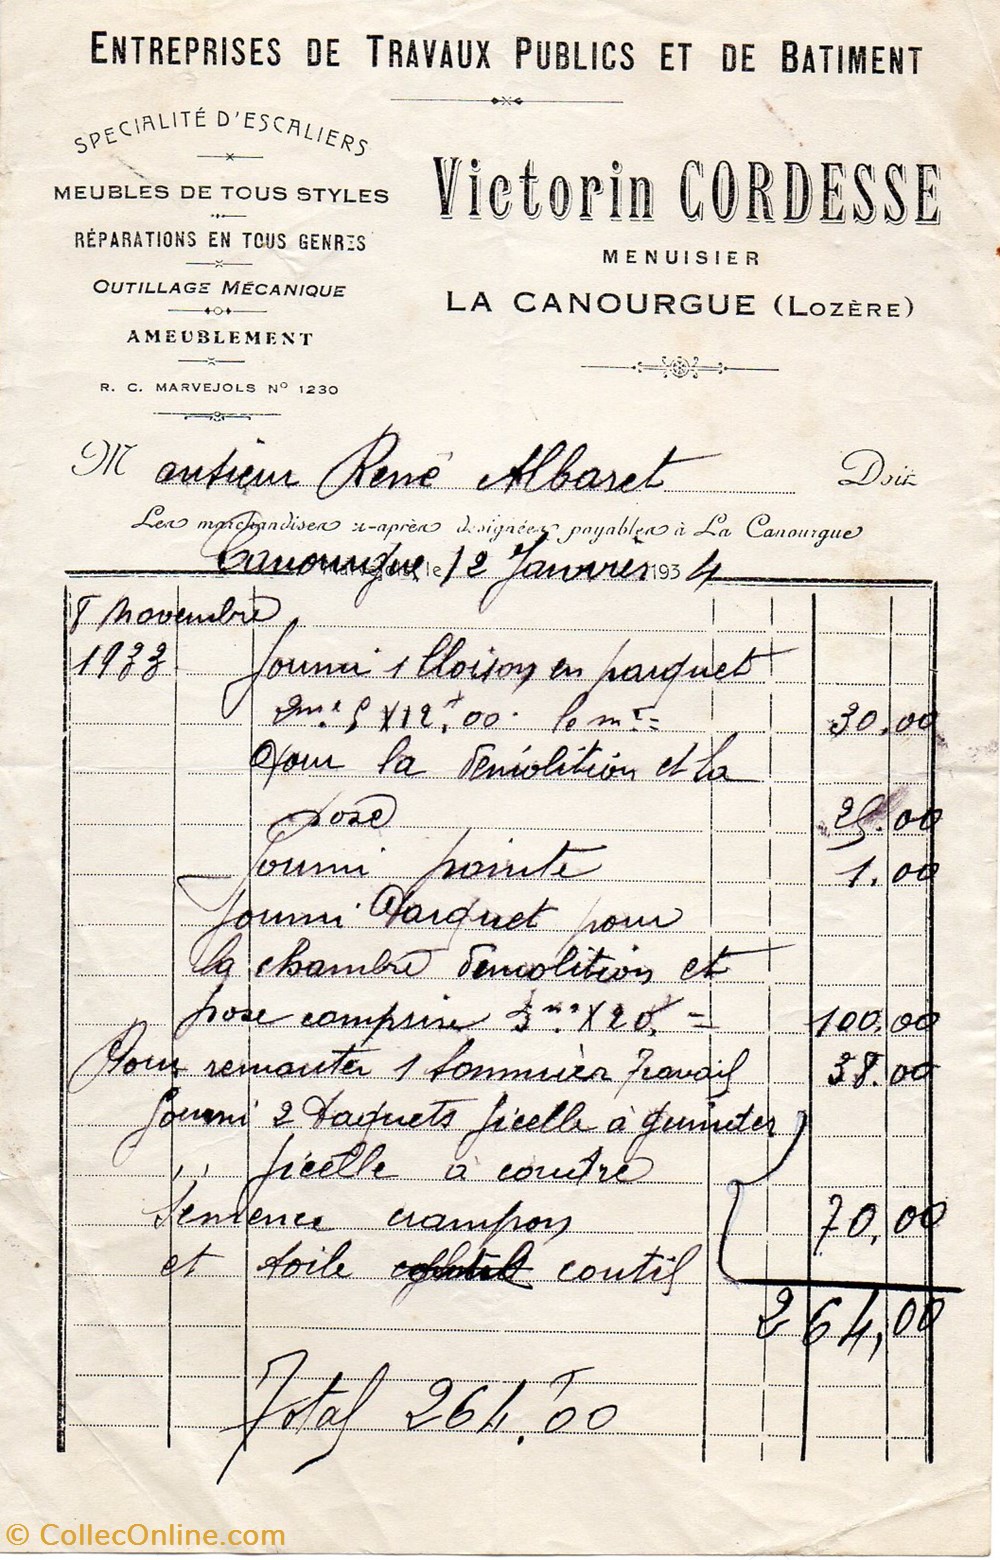 ENTREPRISES DE TRAVAUX PUBLICS ET DE BATIMENT
SPECIALITÉ D'ESCALIERS
MEUBLES DE TOUS STYLES
RÉPARATIONS EN TOUS GENRES
OUTILLAGE MÉCANIQUE
AMEUBLEMENT
R. C. MARVEJOLS No 1230
Victorin CORDESSE
MENUISIER
LA CANOURGUE (LOZÈRE)
M onsieur René Albaret Doit
Les marchandises ci-après désignées payables à La Canourgue
Canourgue le 12 Janvrier 1934
8 Novembre
1933 fourni 1 Cloison en parquet
2m2 5 X 12f,00 le m2 = 30.00
Pour la démolition et la
pose 25.00
fourni pointe 1.00
fourni Parquet pour
la chambre démolition et
pose comprise 5m2 X 20f = 100.00
Pour remonter 1 Sommier Travail 38.00
fourni 2 Paquets ficelle à
,, ficelle à coudre
Semence crampons 70,00
et toile coutil
264,00
Total 264f.00
© CollecOnline.com